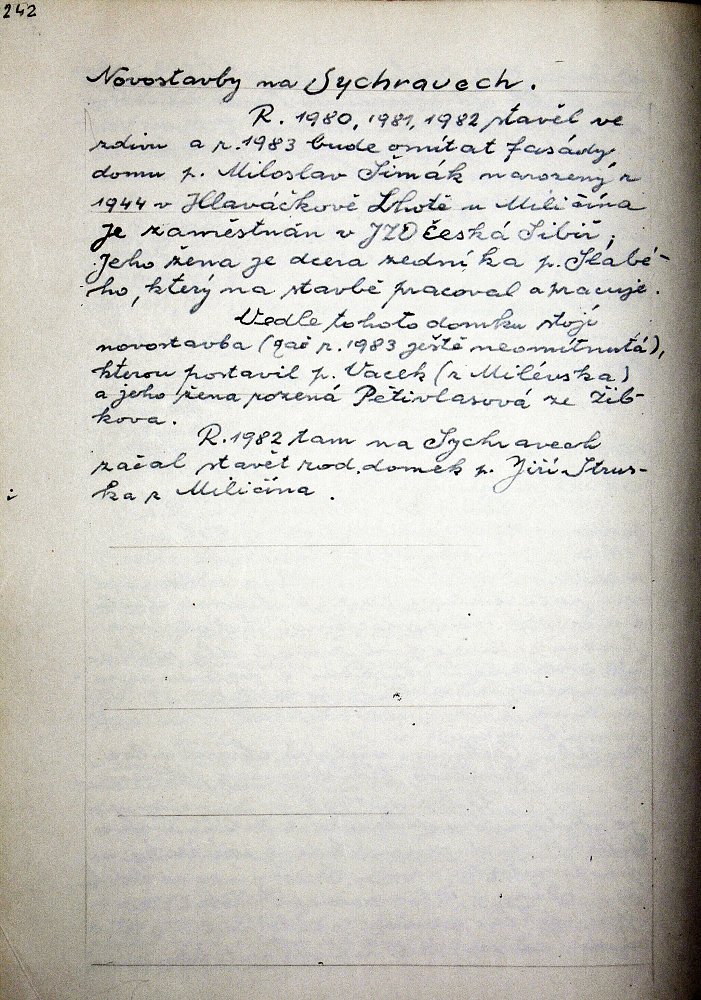 242
Novostavby na Sychravech.
R. 1980, 1981, 1982 stavěl ve
zdivu a r. 1983 bude omítat fasády
domu p. Miloslav Šimák narozený r
1944 v Hlaváčkově Lhotě u Miličína
Je zaměstnán v JZD Česká Sibiř,
Jeho žena je dcera zedníka p. Slabé-
ho, který na stavbě pracoval a pracuje.
Vedle tohoto domku stojí
novostavba (r. 1983 ještě neomítnutá),
kterou postavil p. Vacek (z Milévska)
a jeho žena rozená Pětivlasová ze Žib-
kova.
R. 1982 tam na Sychravech
začal stavět rod. domek p. Jiří Strus-
ka z Miličína.